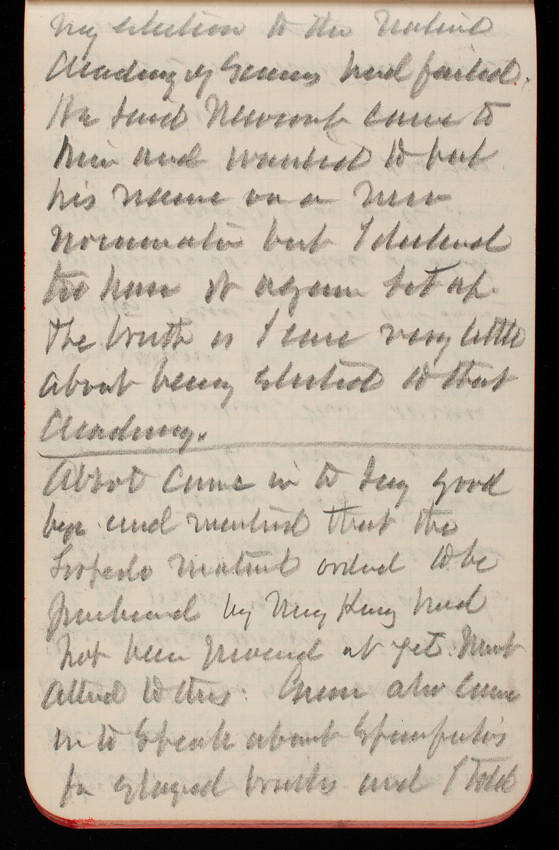 my election to the National
Academy of Sciences had failed.
He said Newcomb came to
him and wanted to put
his name on a new
nomination but I declined
to have it again set up.
The truth is I care very little
about being elected to that
Academy.
Abbot came in to say good
bye and mentioned that the
Torpedo material ordered to be
purchased by may King had
not been procured as yet. Must
attend to this. also came
in to speak about specifications
for trucks and I told